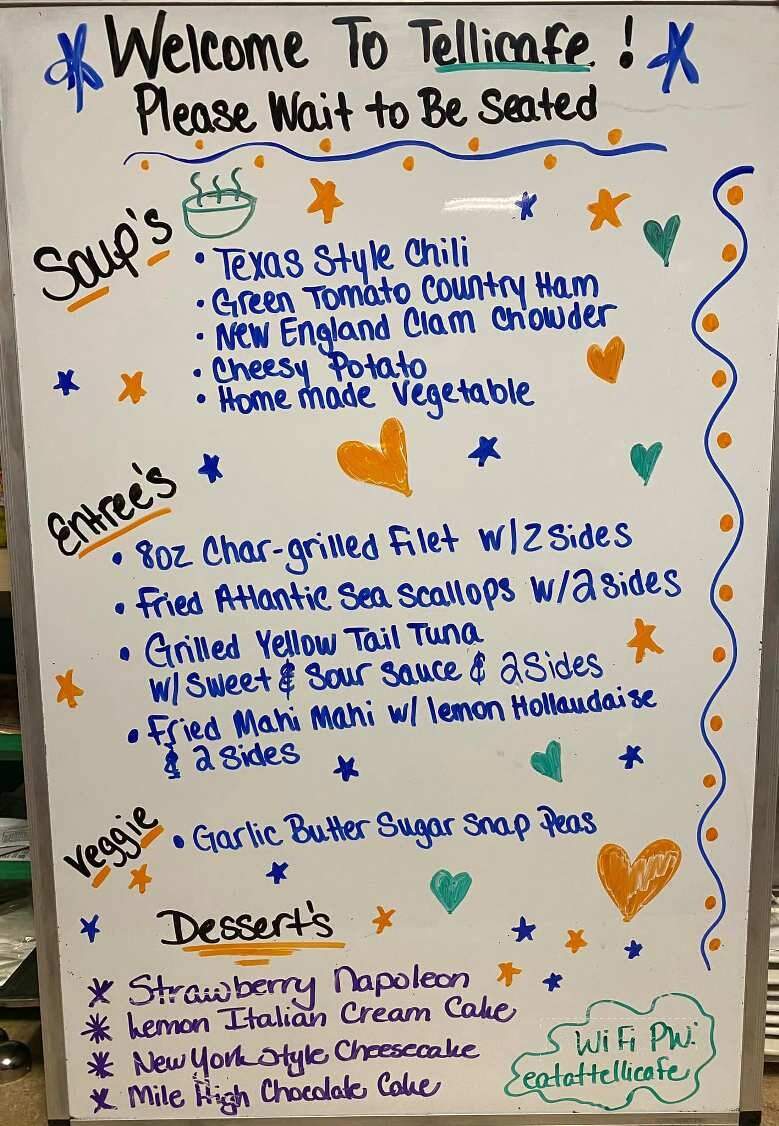 Welcome To Tellicafe !
Please Wait to Be Seated
Soup's
• Texas Style Chili
• Green Tomato Country Ham
• New England Clam Chowder
• Cheesy Potato
• Homemade Vegetable
Entree's
• 8oz Char-grilled Filet w/2 Sides
• Fried Atlantic Sea Scallops w/2 sides
• Grilled Yellow Tail Tuna
w/ Sweet & Sour Sauce & 2 Sides
• Fried Mahi Mahi w/ lemon Hollaudaise
& 2 sides
Veggie
• Garlic Butter Sugar Snap Peas
Dessert's
* Strawberry Napoleon
* Lemon Italian Cream Cake
* New York Style Cheesecake
* Mile High Chocolate Cake
WiFi PW:
eatattellicafe